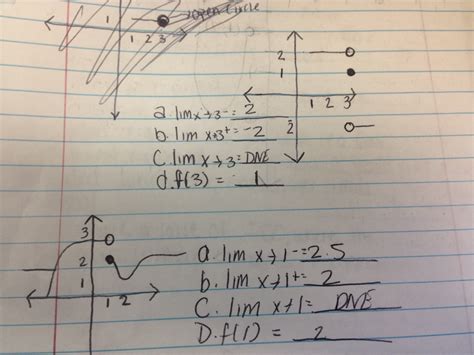 open circle
1
1 2 3
2
1
1 2 3
2
a. lim x→3⁻ = 2
b. lim x→3⁺ = -2
C. lim x→3 = DNE
d. f(3) = 1
3
2
1
1 2
a. lim x→1⁻ = 2.5
b. lim x→1⁺ = 2
C. lim x→1 = DNE
D. f(1) = 2